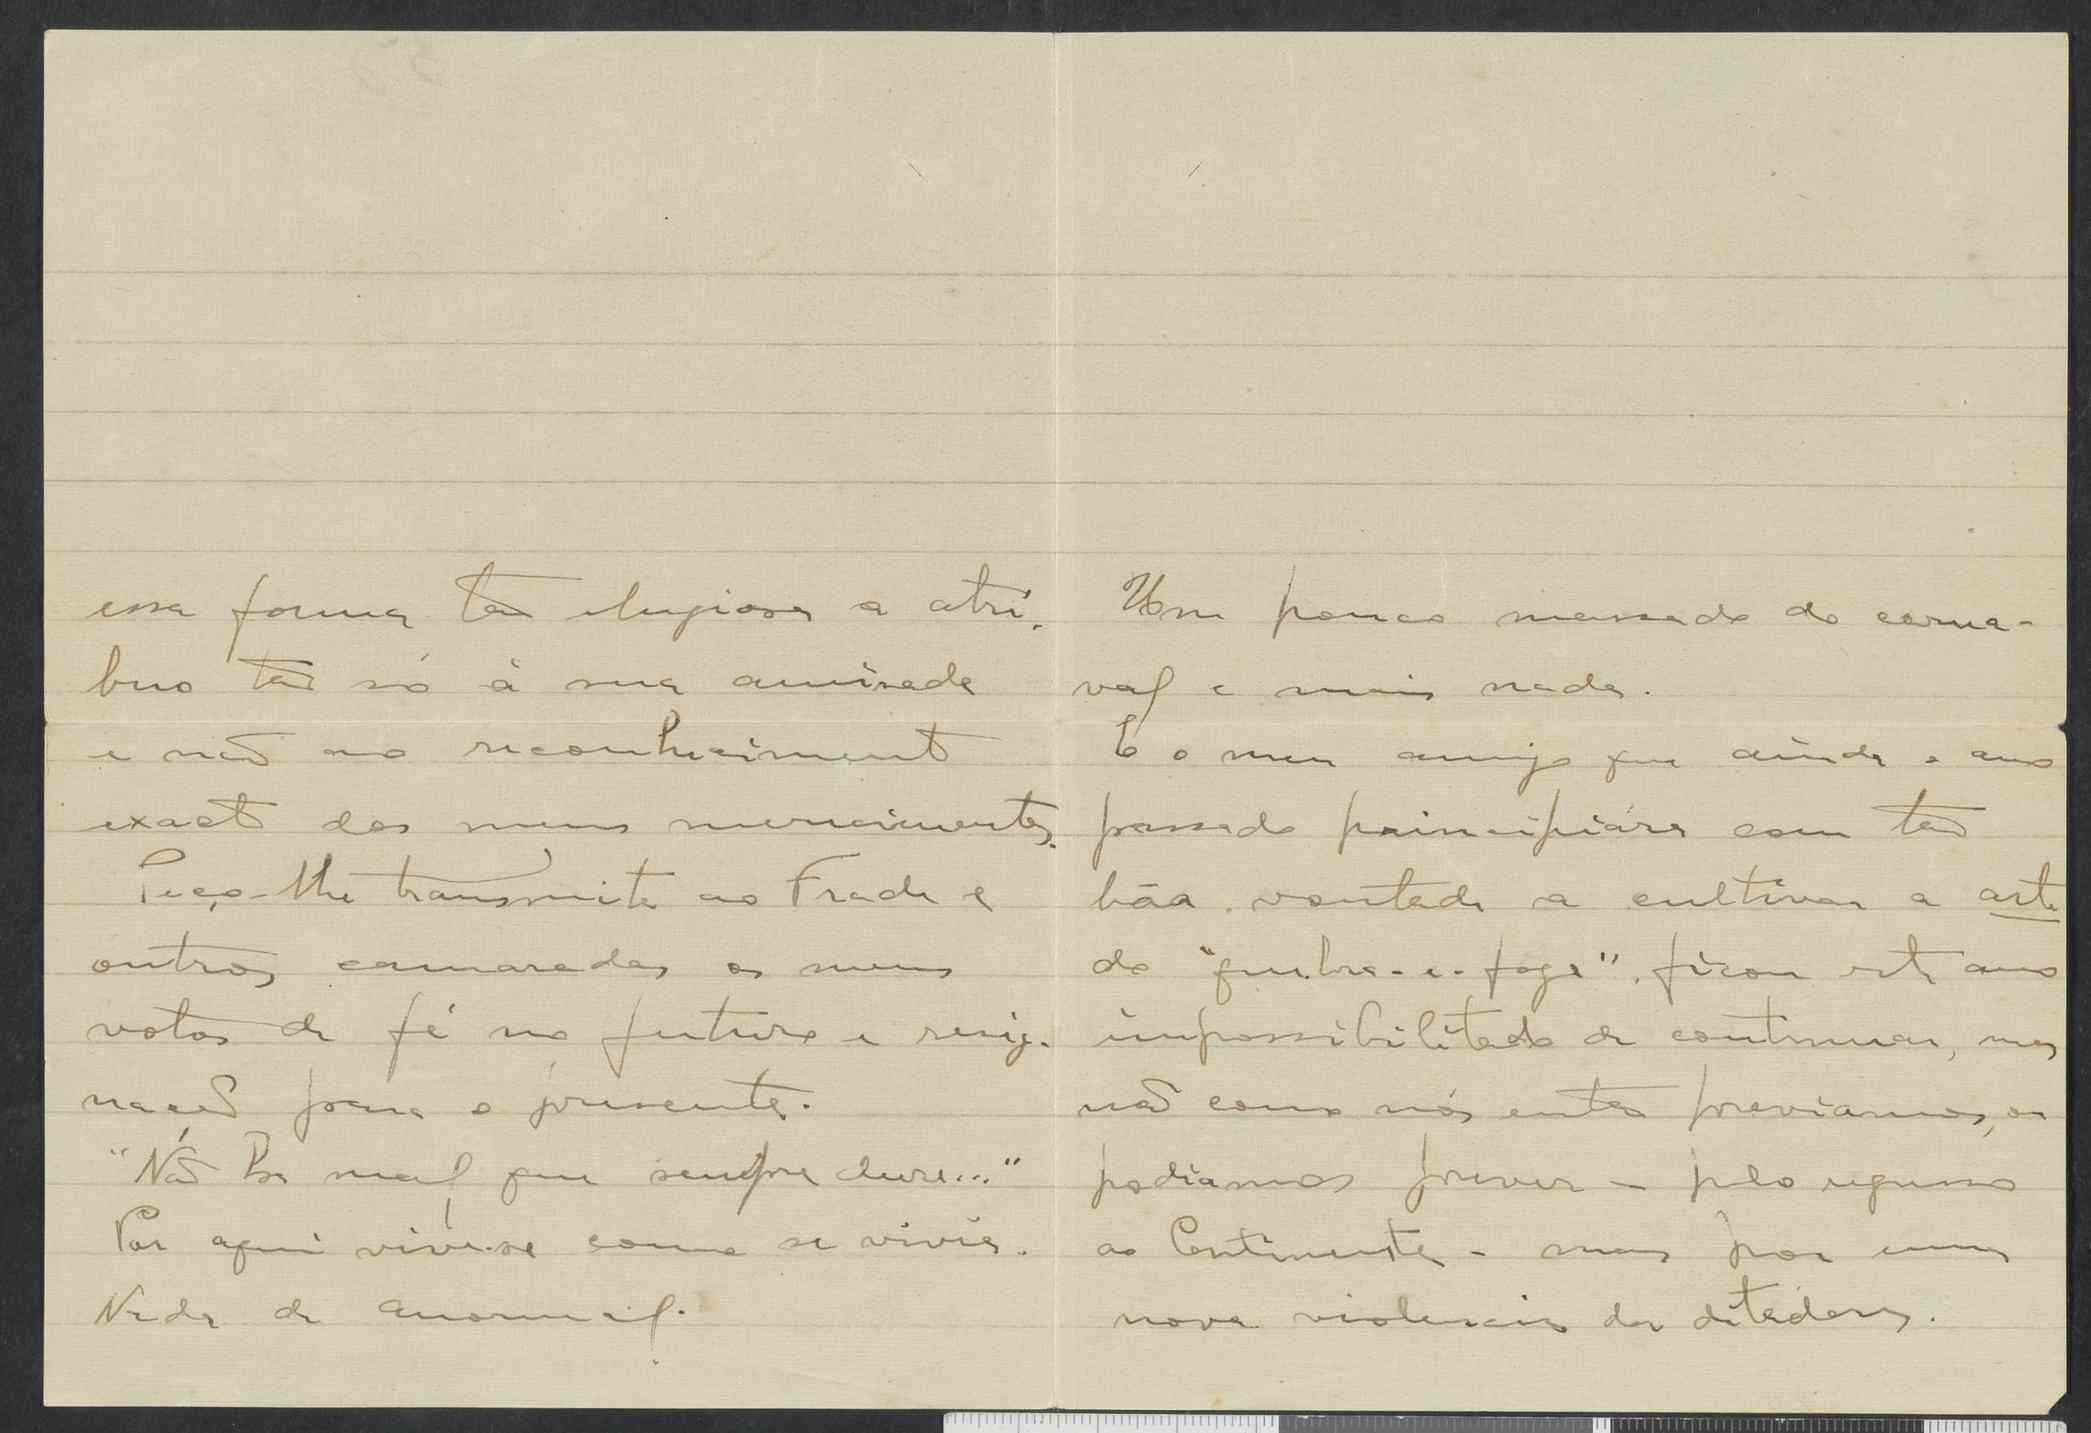 essa forma tão elogiosa a atri-
buo tão só à sua amisade
e não ao reconheciment
exacto dos meus merecimentos.
Peço-lhe transmita ao Frade e
outros camaradas os meus
votos de fé no futuro e resig-
nação para o presente.
"Não ha mal que sempre dure..."
Por aqui vive-se como se vivia.
Nada de anormal.
Um pouco massado do carna-
val e mais nada.
E o meu amigo que ainda o ano
passado principiára com tão
bôa vontade a cultivar a arte
do "quebra-e-foge", ficou este ano
impossibilitado de continuar, mas
não como nós entes previamos, ou
podiamos prever - pelo regresso
ao Continente - mas por uma
nova violencia da ditadura.